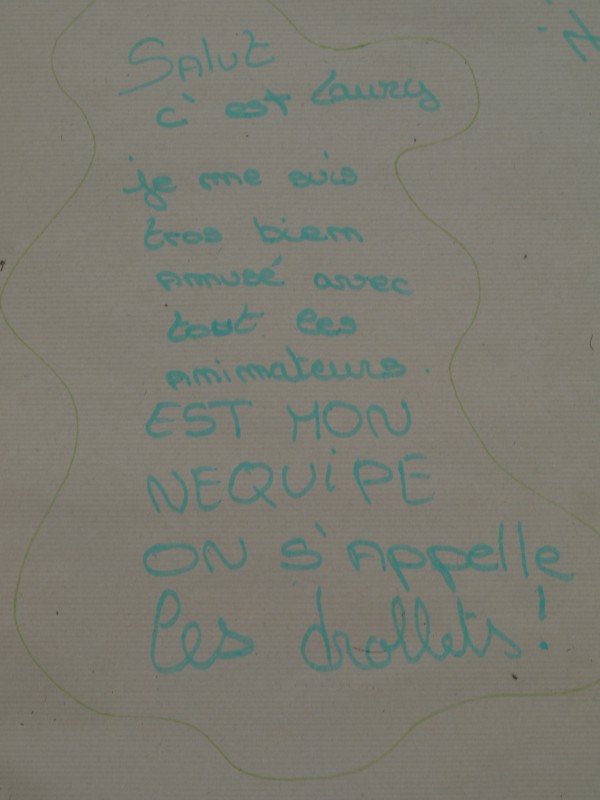 Salut
c'est Laury
je me suis
tros biem
Amusé avec
tout les
animateurs.
EST MON
NEQUiPE
ON S'Appelle
les drollets!